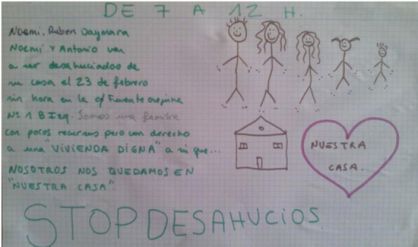 DE 7 A 12 H.
Noemi, Ruben Daynara
Noemi y Antonio van
a ser desahuciados de
su casa el 23 de febrero
sin hora en la c/ Fuente ovejuna
Nº 1 B Izq. Somos una familia
con pocos recursos pero con derecho
a una "VIVIENDA DIGNA" a si que...
NOSOTROS NOS QUEDAMOS EN
"NUESTRA CASA"
NUESTRA
CASA.
STOP DESAHUCIOS